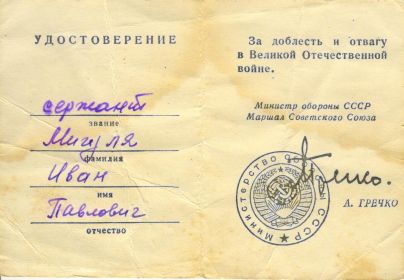 УДОСТОВЕРЕНИЕ
сержант
звание
Мигуля
фамилия
Иван
имя
Павлович
отчество
За доблесть и отвагу
в Великой Отечественной
войне.
Министр обороны СССР
Маршал Советского Союза
Министерство обороны СССР
А. ГРЕЧКО